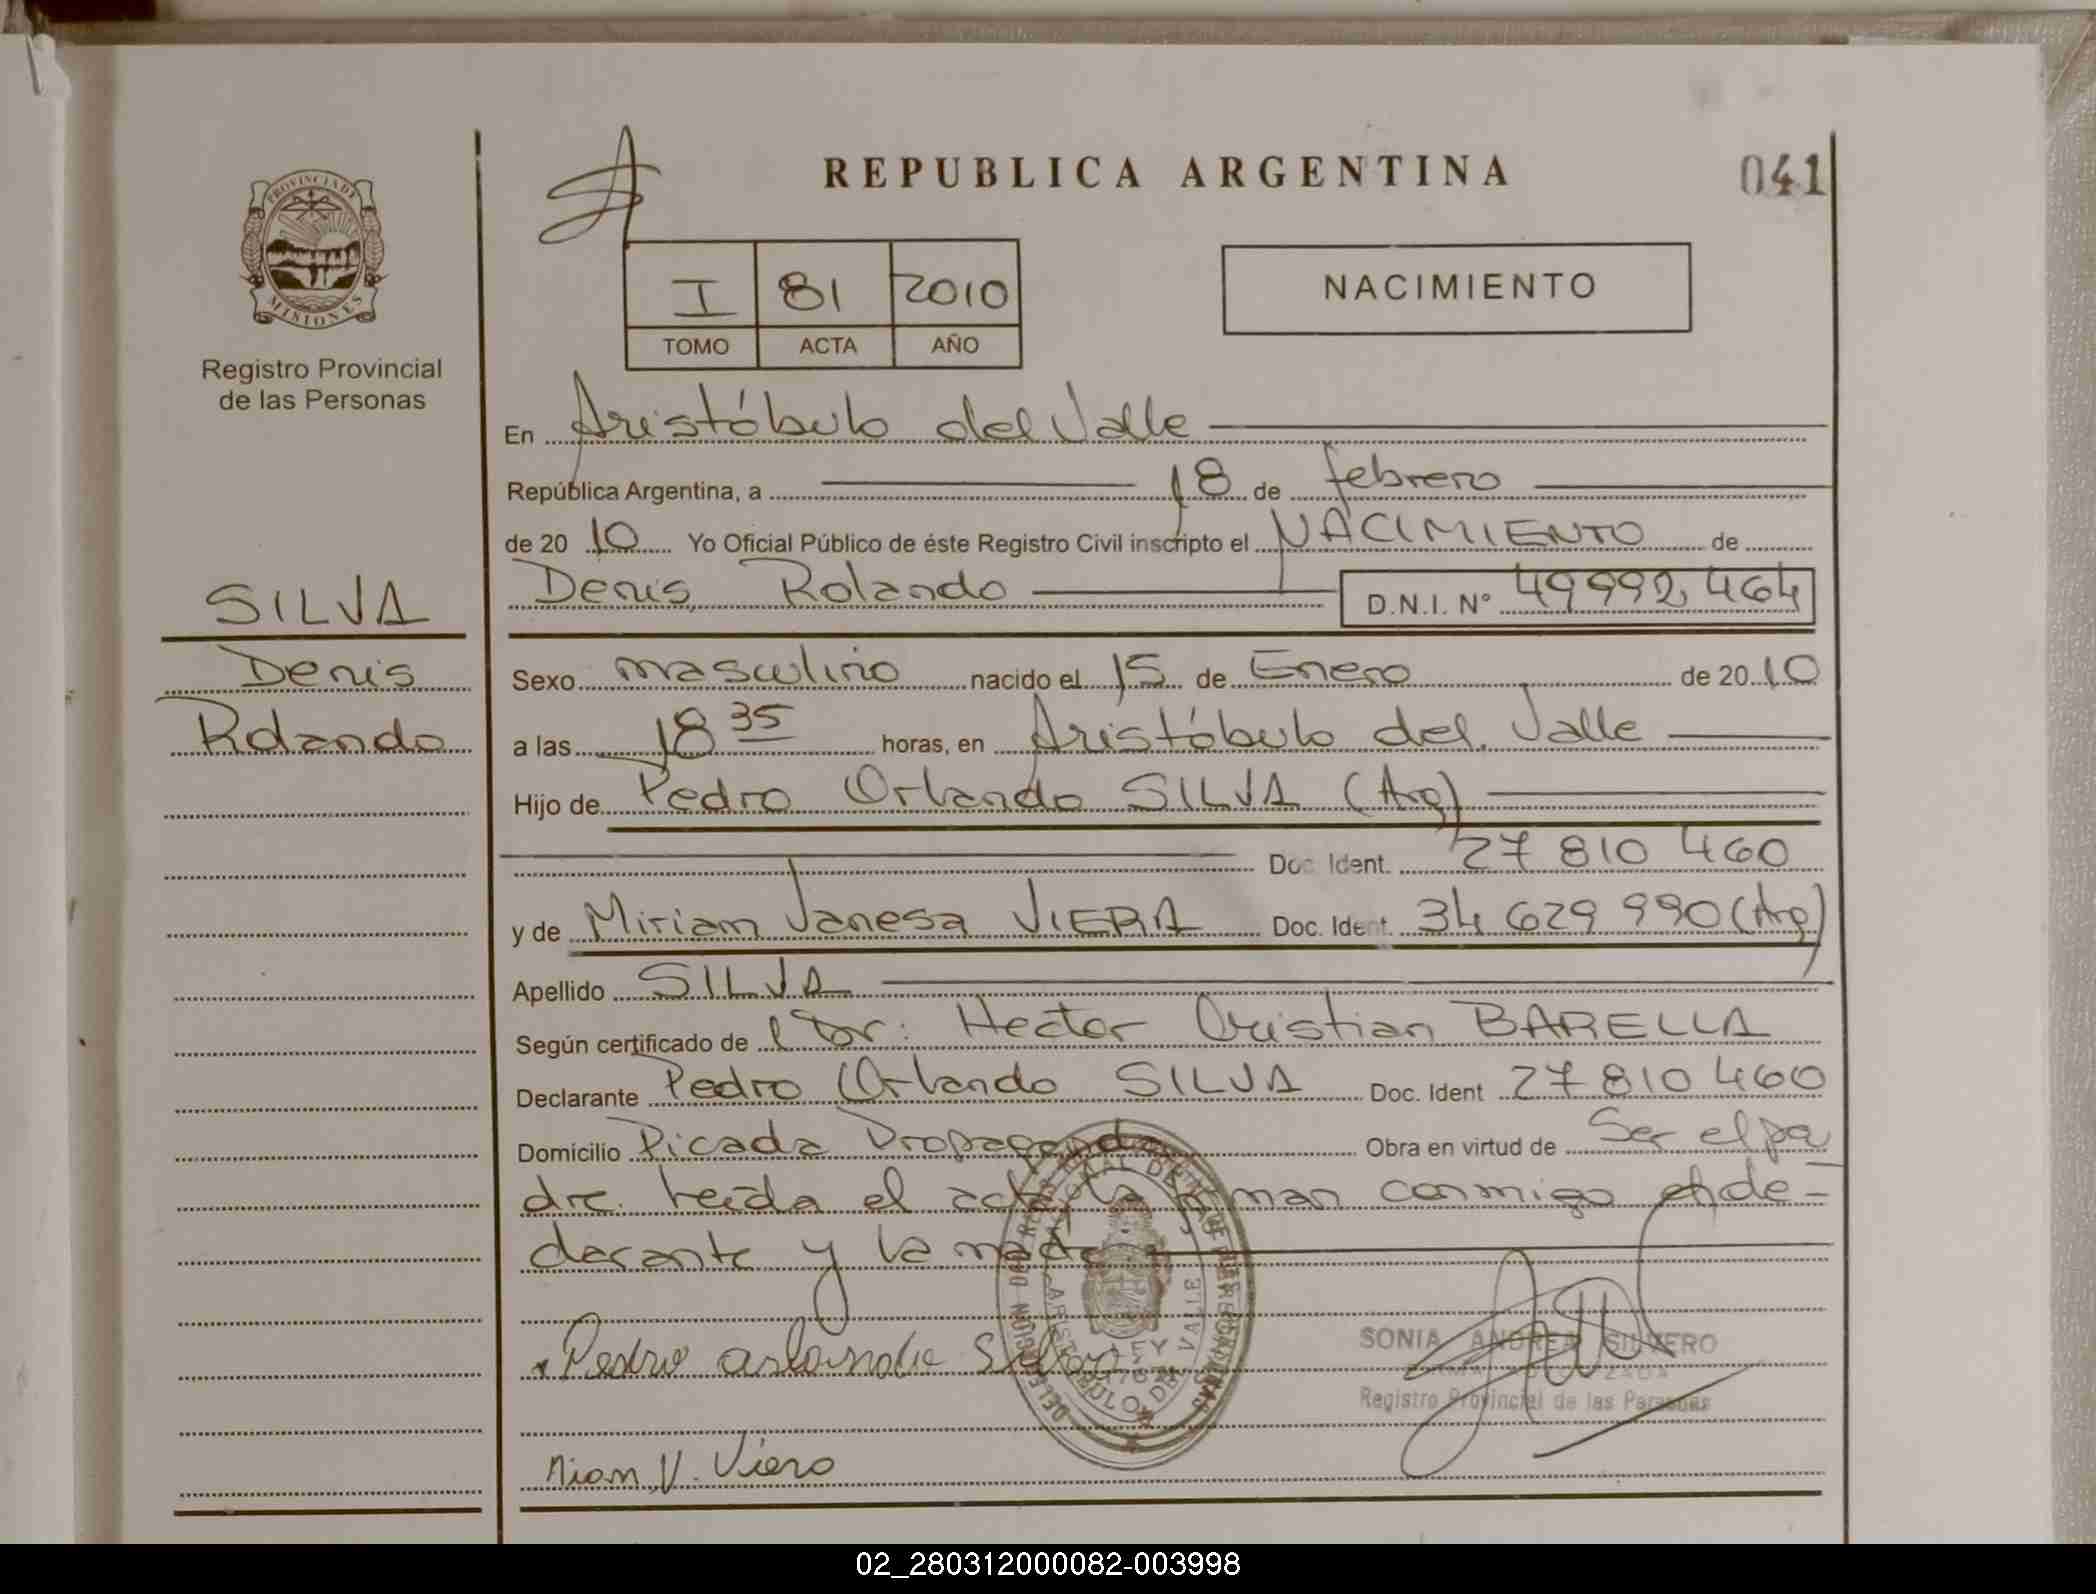 REPUBLICA ARGENTINA
041
PROVINCIA DE
MISIONES
Registro Provincial
de las Personas
I 81 2010
TOMO ACTA AÑO
NACIMIENTO
En Aristóbulo del Valle
República Argentina, a 18 de febrero
de 2010 Yo Oficial Público de éste Registro Civil inscripto el NACIMIENTO de
Denis Rolando D.N.I. Nº 49992464
SILVA
Denis
Rolando
Sexo masculino nacido el 15 de Enero de 2010
a las 18 35 horas, en Aristóbulo del Valle
Hijo de Pedro Orlando SILVA (Arg)
Doc. Ident. 27 810 460
y de Miriam Vanesa VIERA Doc. Ident. 34 629 990 (Arg)
Apellido SILVA
Según certificado de l Dr: Hector Cristian BARELLA
Declarante Pedro Orlando SILVA Doc. Ident 27 810 460
Domicilio Picada Propaganda Obra en virtud de Ser el pa
dre. Leída el acta la firman conmigo el de-
clarante y la madre
Pedro orlando Silva
SONIA ANDREA SILVERO
Registro Provincial de las Personas
V. Viera
02_280312000082-003998